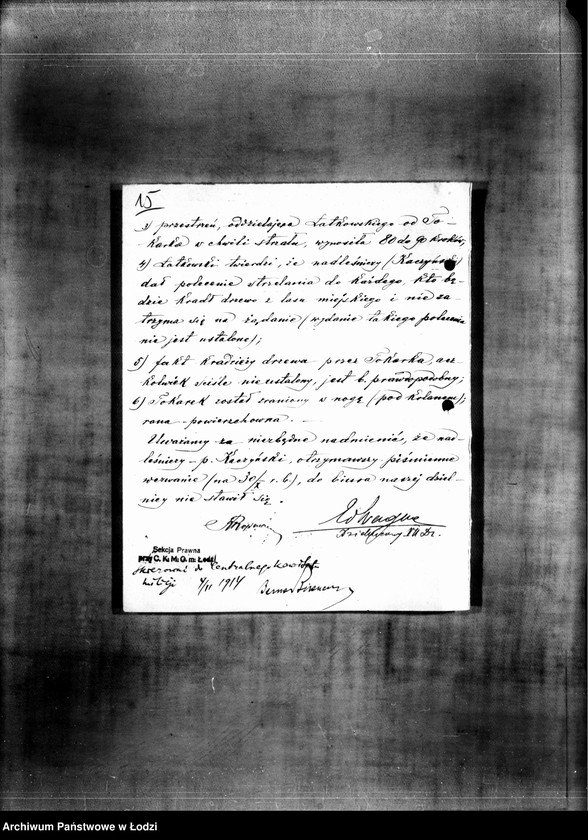 15
3) przestrzeń, oddzielająca Łatkowskiego od To-
karka w chwili strzału, wynosiła 80 do 90 kroków;
4) Łatkowski twierdzi, że nadleśniczy (Kaczyński)
dał polecenie strzelania do każdego, kto bę-
dzie kradł drzewo z lasu miejskiego i nie za
trzyma się na żądanie (wydanie takiego polecenia
nie jest ustalone);
5) fakt kradzieży drzewa przez Tokarka, acz
kolwiek ściśle nie ustalony, jest b. prawdopodobny;
6) Tokarek został zraniony w nogę (pod kolanem);
rana powierzchowna.
Uważamy za niezbędne nadmienić, że nad-
leśniczy p. Kaczyński, otrzymawszy piśmienne
wezwanie (na 30/X r. b.), do biura naszej dziel-
nicy nie stawił się.
Dzielnicowy XII Dz.
Sekcja Prawna
przy C. K. M. O. m. Łodzi
skierować do Centralnego Komitetu
Milicji 4/II 1914
Archiwum Państwowe w Łodzi